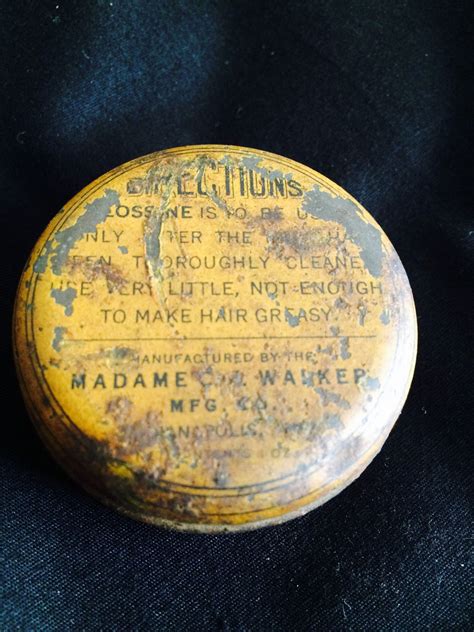 DIRECTIONS
GLOSSINE IS TO BE
ONLY AFTER THE
THOROUGHLY CLEANE
USE VERY LITTLE, NOT ENOUGH
TO MAKE HAIR GREASY.
MANUFACTURED BY THE
MADAME C. J. WALKER
MFG. CO.
INDIANAPOLIS,
CONTENTS 1 OZ.